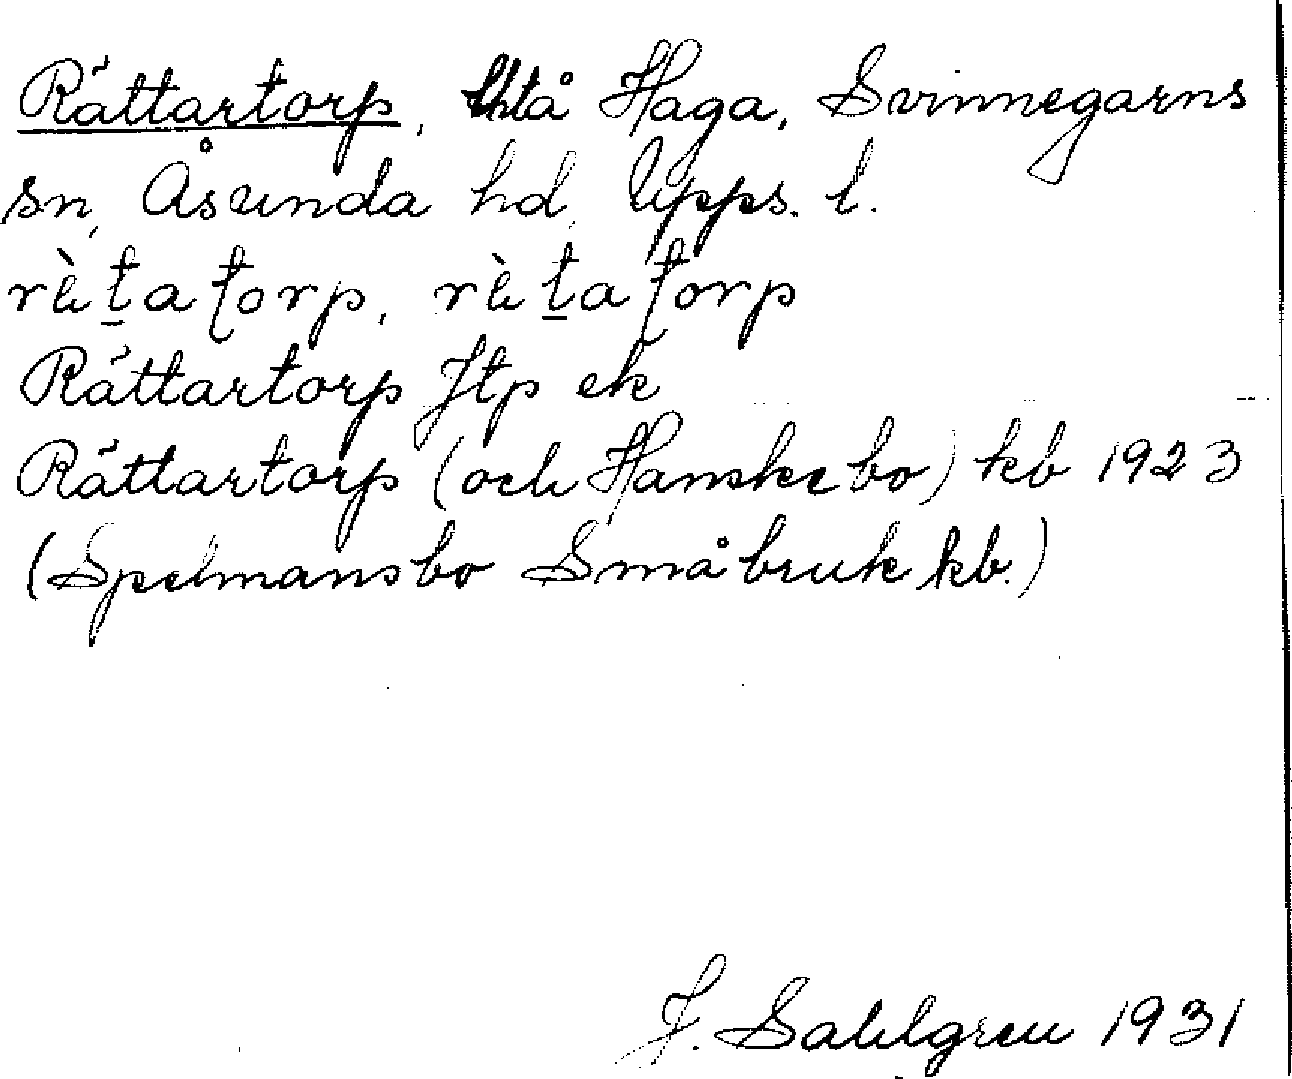 Rättartorp, lhtå Haga, Svinnegarns
sn, Åsunda hd, Upps. l.
rètatorp, rètatorp
Rättartorp Jtp ek
Rättartorp (och Hanskebo) kb 1923
(Spelmansbo Småbruk kb.)
J. Sahlgren 1931